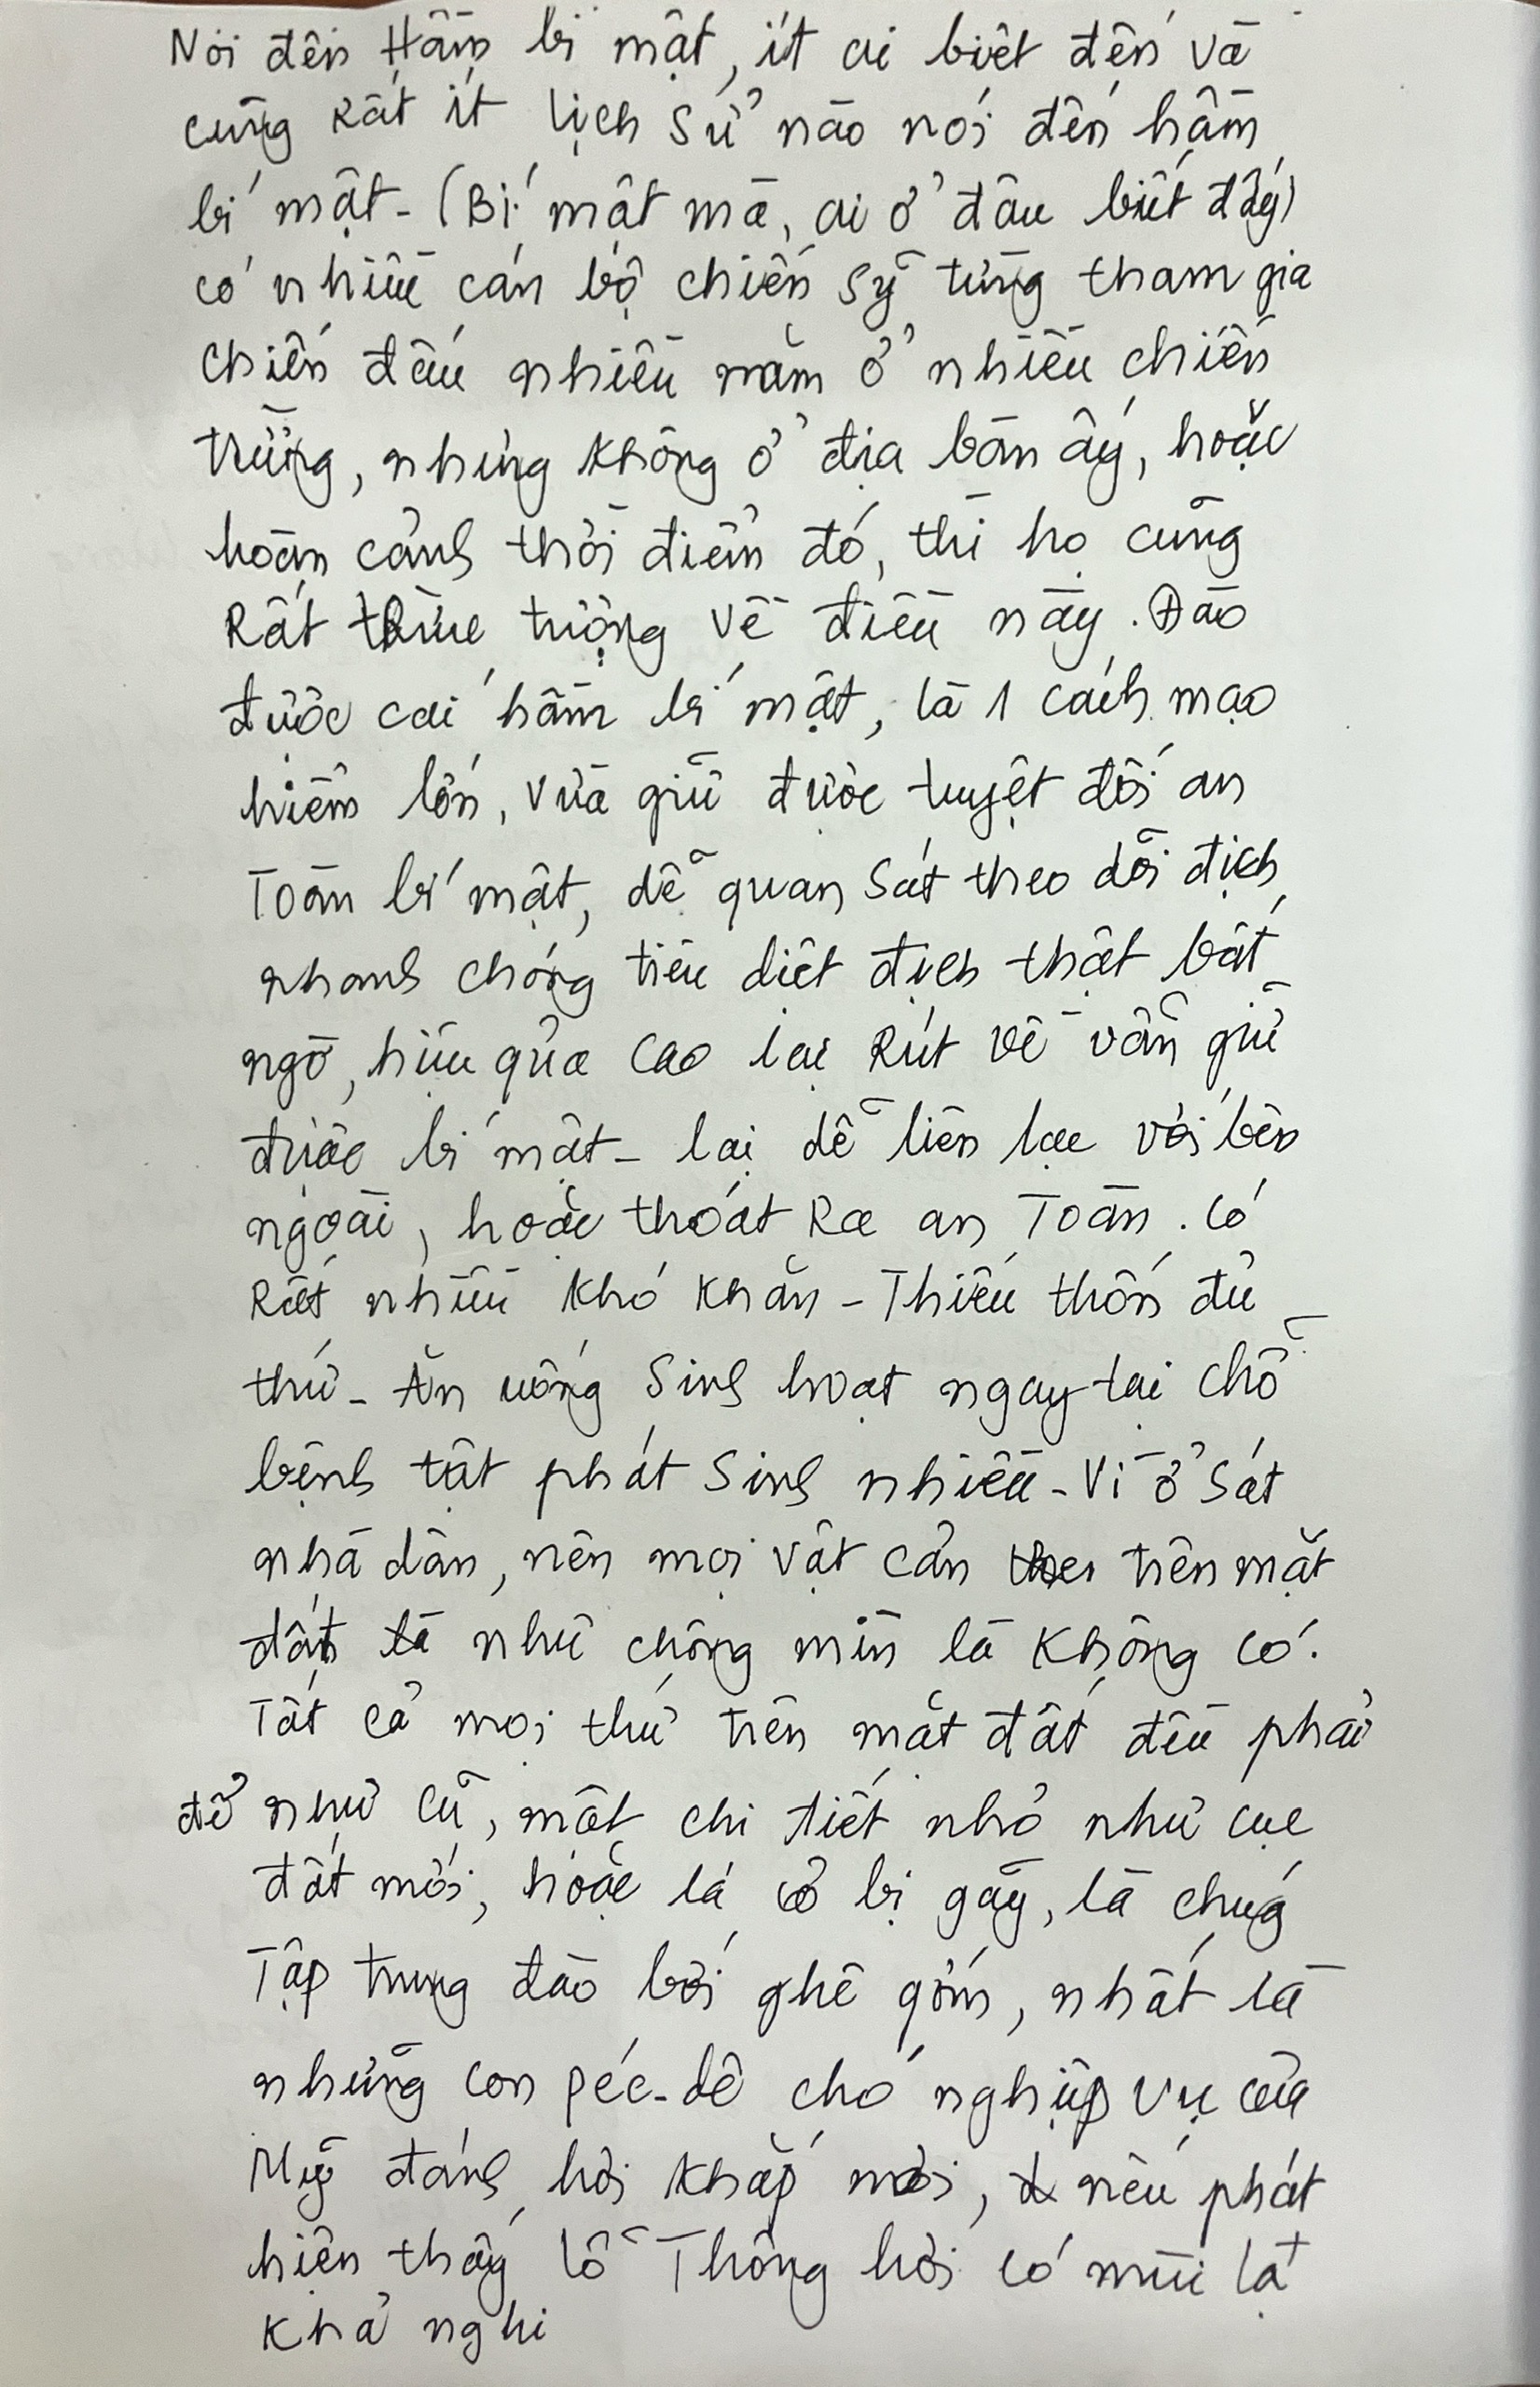 Nói đến Hầm bí mật, ít ai biết đến và
cũng rất ít lịch sử nào nói đến hầm
bí mật - (Bí mật mà, ai ở đâu biết đấy)
có nhiều cán bộ chiến sỹ từng tham gia
chiến đấu nhiều năm ở nhiều chiến
trường, nhưng không ở địa bàn ấy, hoặc
hoàn cảnh thời điểm đó, thì họ cũng
Rất tượng về điều này. Đào
được cái hầm bí mật, là 1 cách mạo
hiểm lớn, vừa giữ được tuyệt đối an
Toàn bí mật, dễ quan sát theo dõi địch,
nhanh chóng tiêu diệt địch thật bất
ngờ, hiệu quả cao lại Rút về vẫn giữ
được bí mật - lại dễ liên lạc với bên
ngoài, hoặc thoát Ra an Toàn. Có
Rất nhiều khó khăn - Thiếu thốn đủ
thứ - Ăn uống Sinh hoạt ngay tại chỗ
bệnh tật phát Sinh nhiều - Vì ở Sát
nhà dân, nên mọi vật cản trên mặt
đất là như chông mìn là không có.
Tất cả mọi thứ trên mặt đất đều phải
để như cũ, một chi tiết nhỏ như cục
đất mới, hoặc lá cỏ bị gãy, là chúng
Tập trung đào bới ghê gớm, nhất là
những con péc-dê chó nghiệp vụ của
Mỹ đánh hơi khắp nơi, nếu phát
hiện thấy lỗ Thông hơi có mùi lạ
khả nghi